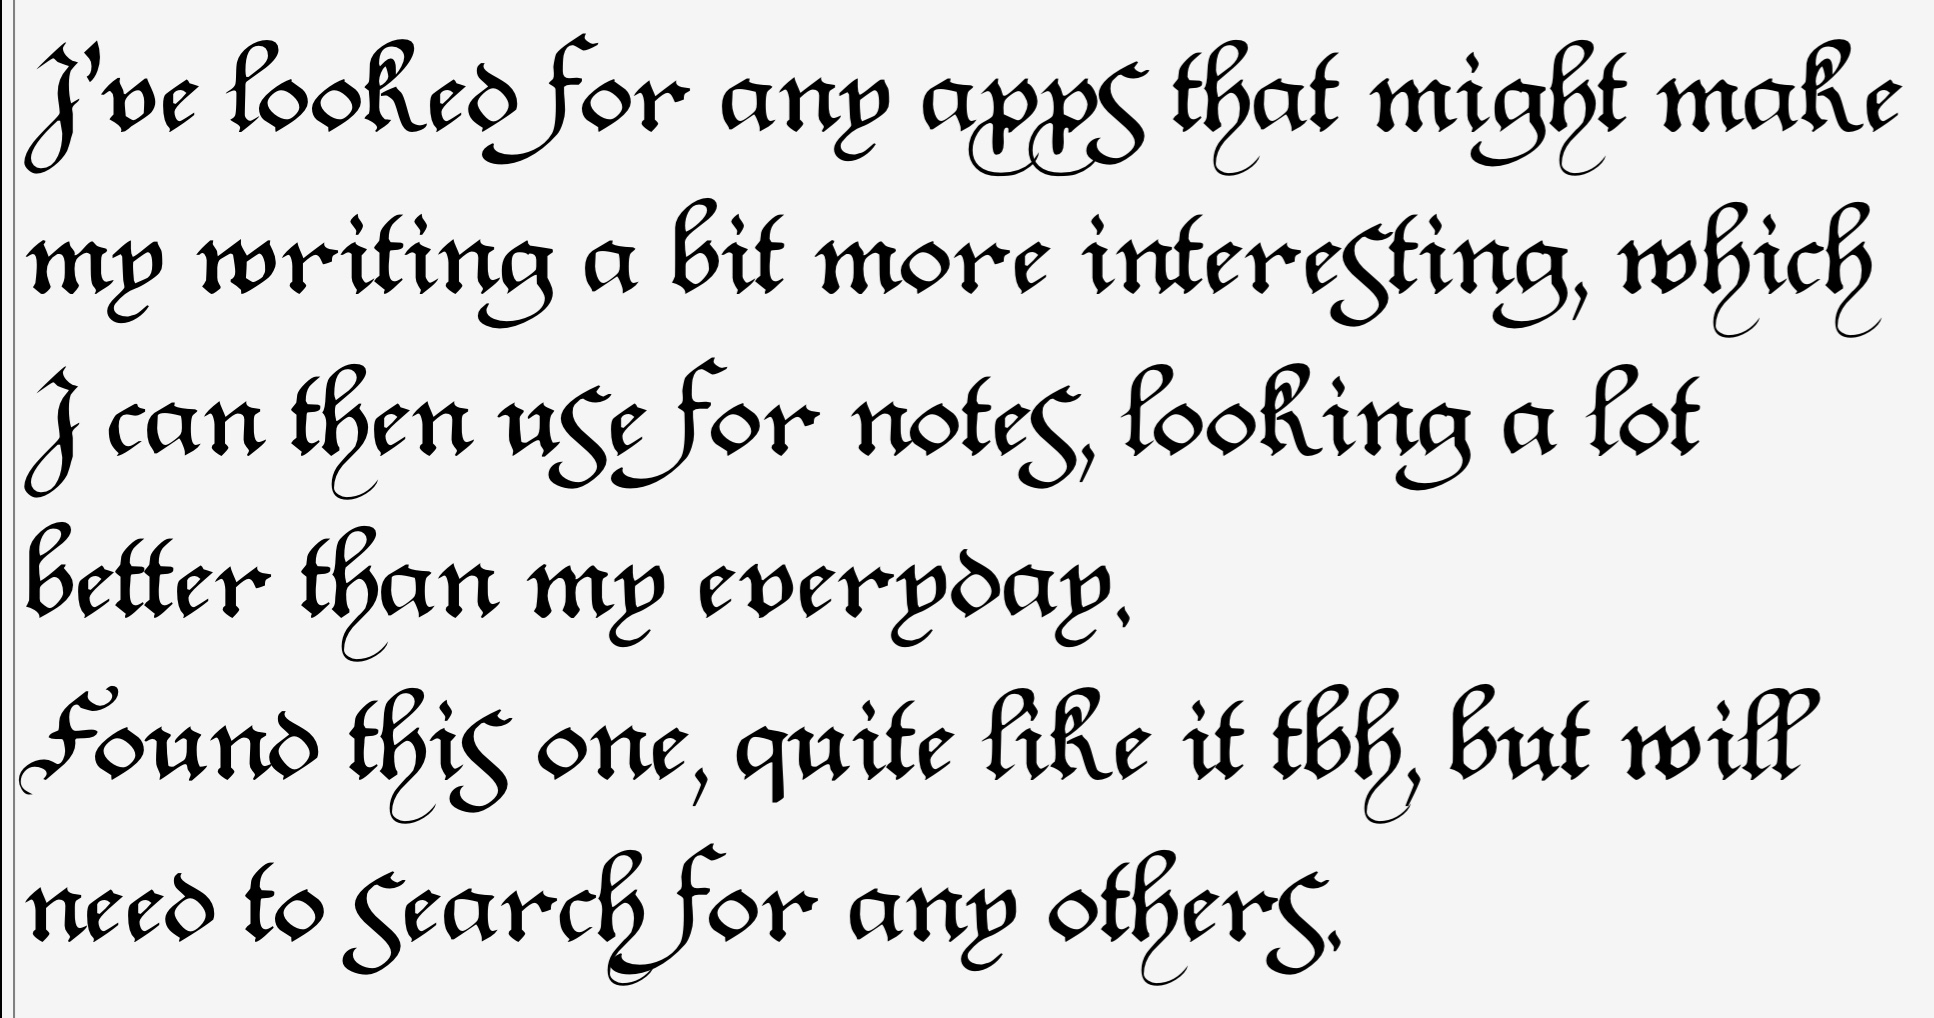 I've looked for any apps that might make
my writing a bit more interesting, which
I can then use for notes, looking a lot
better than my everyday.
Found this one, quite like it tbh, but will
need to search for any others.